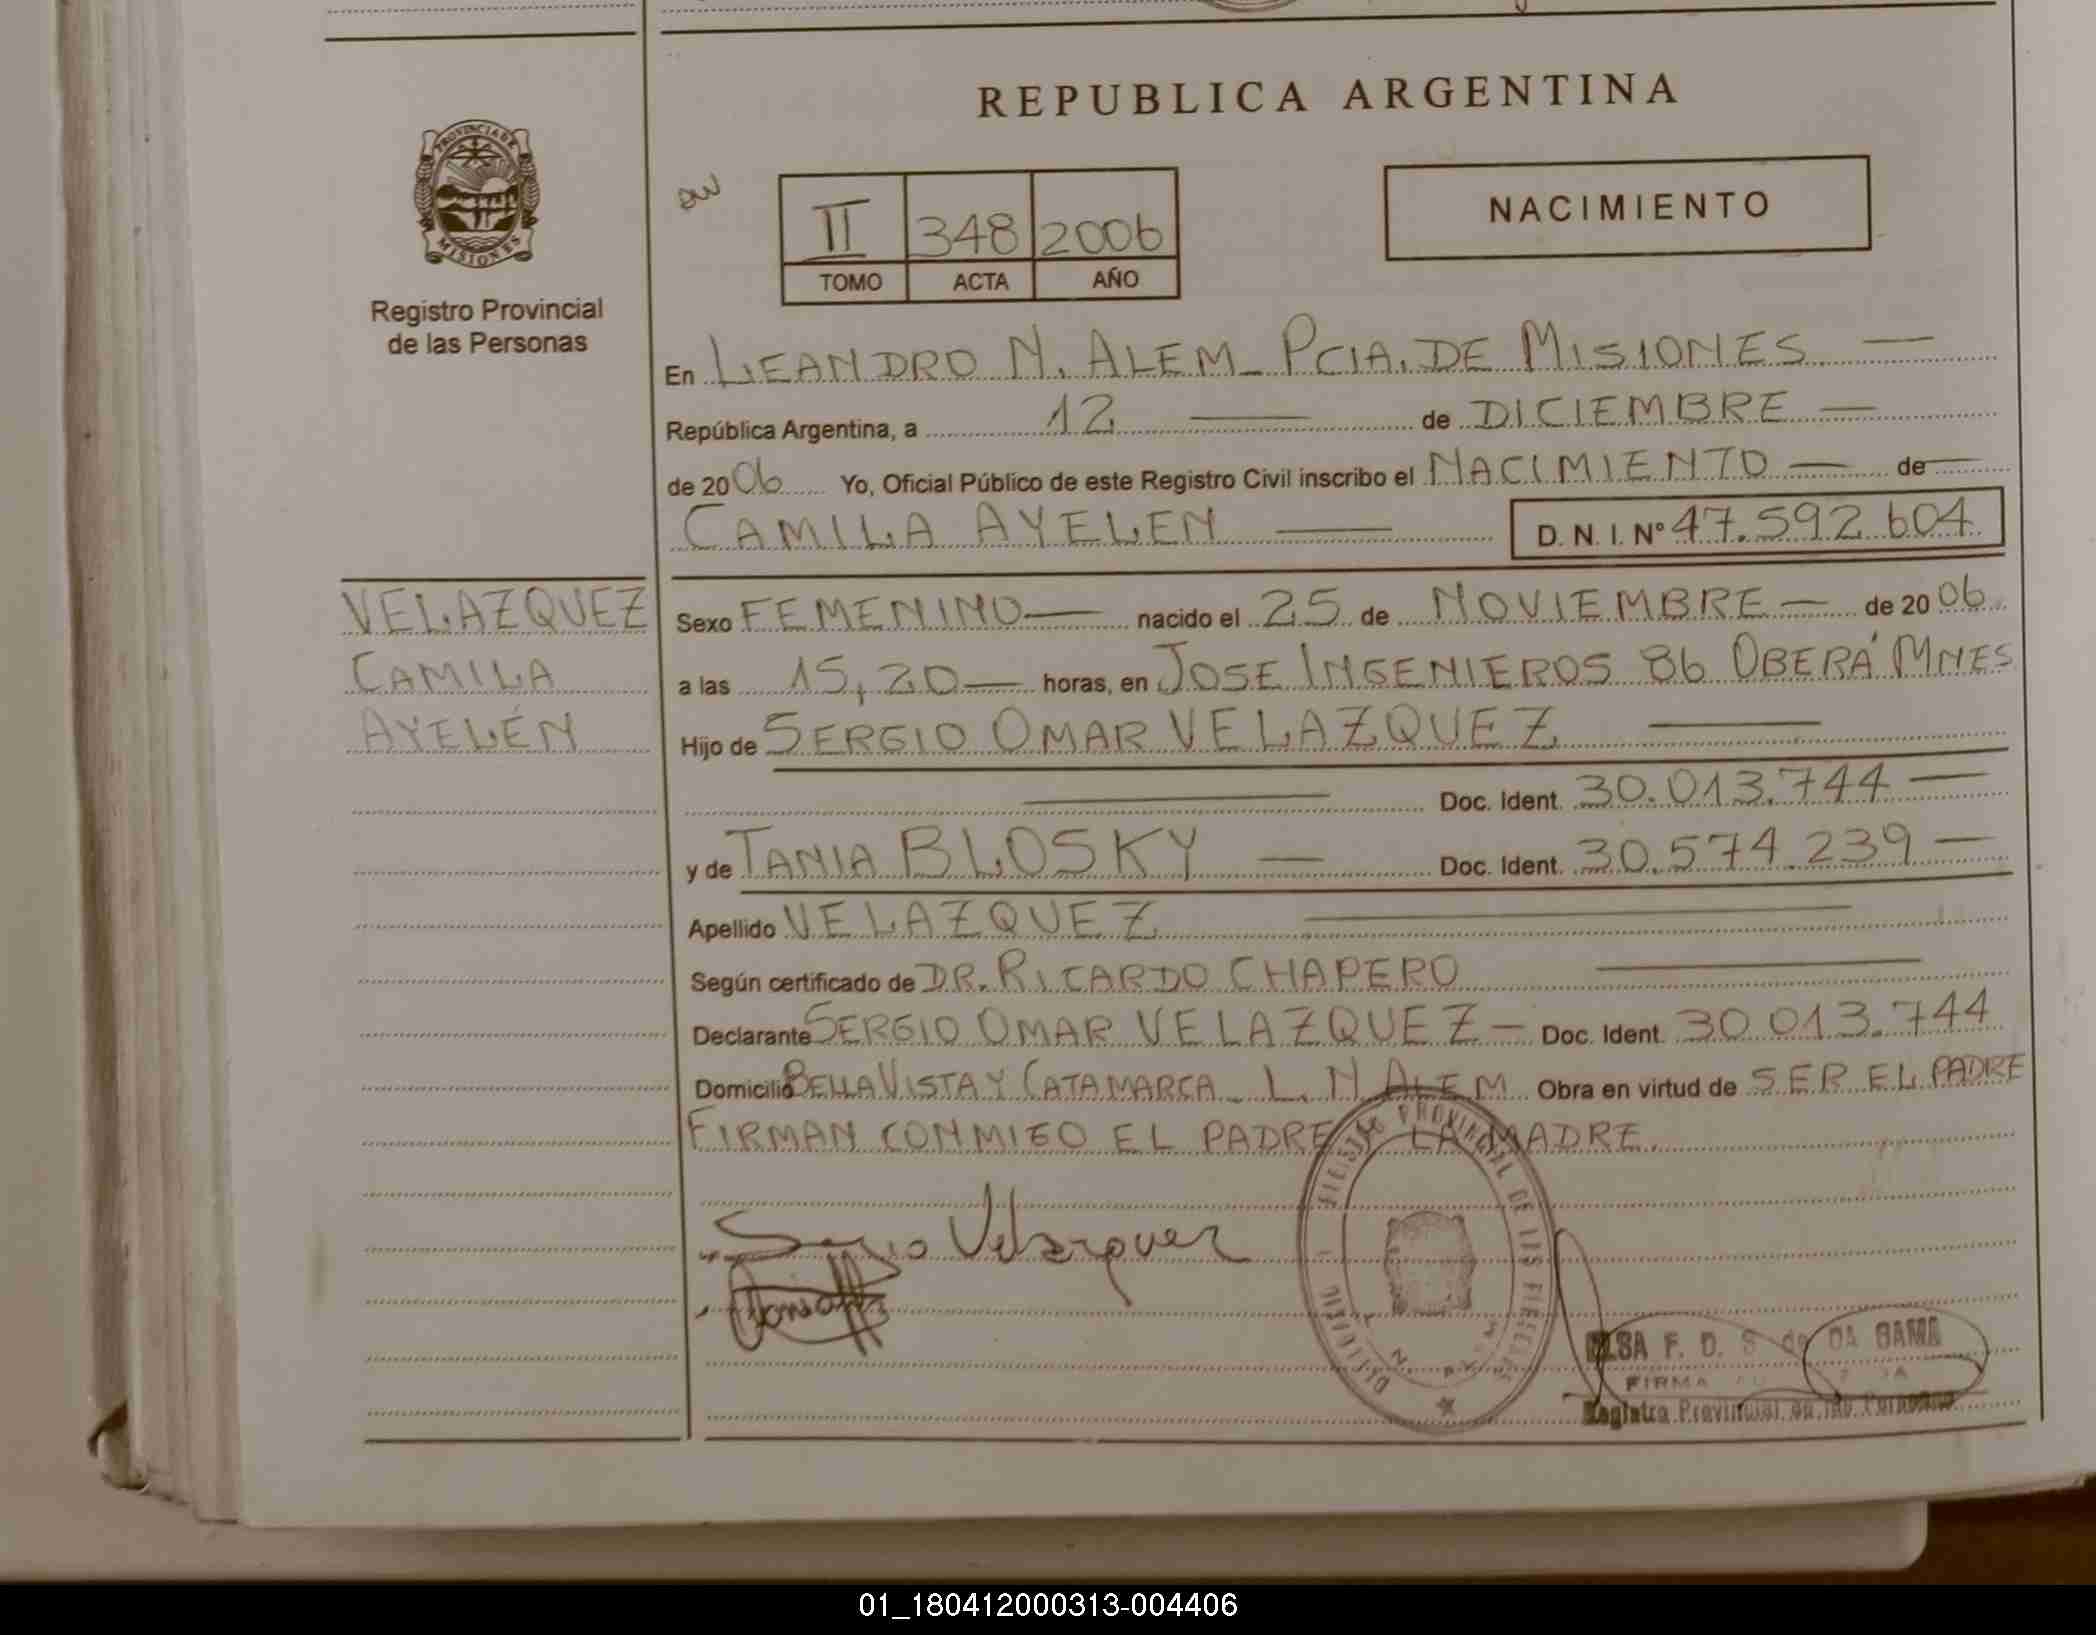 REPUBLICA ARGENTINA
PROVINCIA DE
MISIONES
Registro Provincial
de las Personas
II 348 2006
TOMO ACTA AÑO
NACIMIENTO
En LEANDRO N. ALEM_ PCIA. DE MISIONES —
República Argentina, a 12 — de DICIEMBRE —
de 2006 Yo, Oficial Público de este Registro Civil inscribo el NACIMIENTO — de —
CAMILA AYELEN — D. N. I. Nº 47.592.604
VELAZQUEZ
CAMILA
AYELÉN
Sexo FEMENINO — nacido el 25 de NOVIEMBRE — de 2006
a las 15,20 — horas, en JOSE INGENIEROS 86 OBERÁ MNES
Hijo de SERGIO OMAR VELAZQUEZ —
— Doc. Ident. 30.013.744 —
y de TANIA BLOSKY — Doc. Ident. 30.574.239 —
Apellido VELAZQUEZ —
Según certificado de DR. RICARDO CHAPERO —
Declarante SERGIO OMAR VELAZQUEZ — Doc. Ident. 30.013.744
Domicilio BELLA VISTA Y CATAMARCA_ L. N ALEM Obra en virtud de SER EL PADRE
FIRMAN CONMIGO EL PADRE Y LA MADRE.
Sergio Velazquez
PROVINCIAL DE LAS
ELSA F. D. S de DA GAMA
FIRMA
Registro Provincial de las Personas
01_180412000313-004406